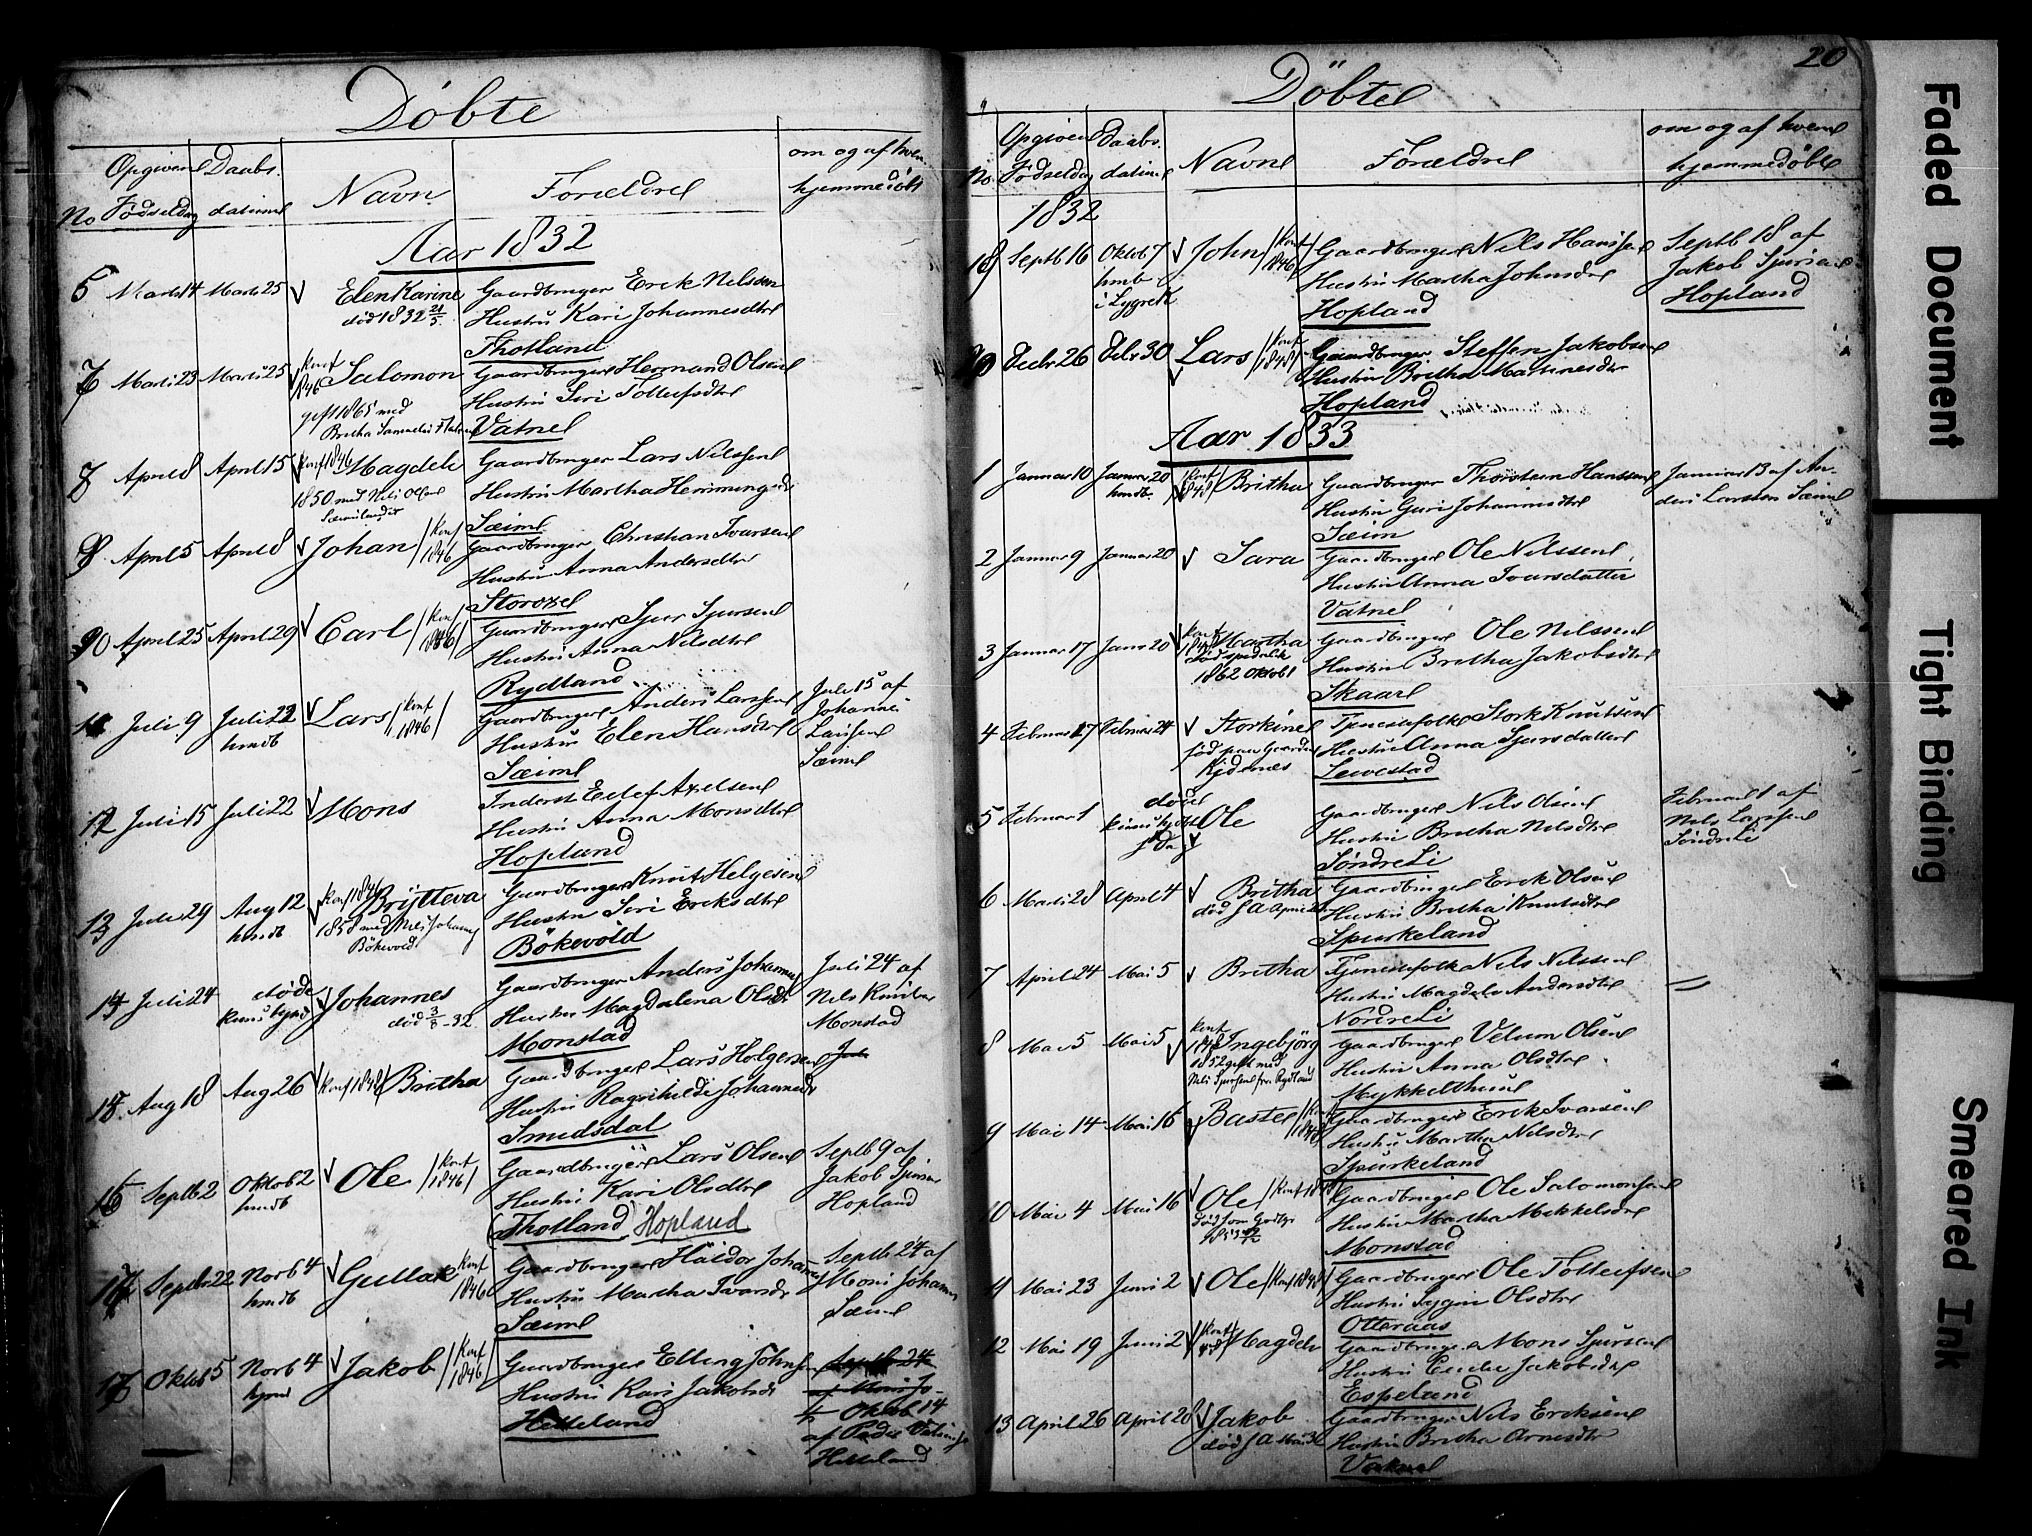 Döbte
No Opgiven Fødseldag Daabs datum Navn Forældre om og af hvem hjemmedøbt
Aar 1832
5 Marts 14 Marts 25 Elen Karine Gaardbruger Erek Nilssen
død 1832 21/5 Hustru Kari Johannesdtr
Thotland
7 Marts 23 Marts 25 konf 1846 Salomon Gaardbruger Hermand Olsen
gift 1865 med Hustru Siri Tolleifsdtr
Britha Vatne
8 April 8 April 15 konf 1846 Magdele Gaardbruger Lars Nilssen
1850 med Nils Hustru Martha Hemmingsdtr
Sæim
9 April 5 April 8 Johan /konf 1846 Gaardbruger Christian Ivarsen
Hustru Anna Andersdtr
Storoxel
10 April 25 April 29 Carl /konf 1846/ Gaardbruger Sjur Sjursen
Hustru Anna Nilsdtr
Rydland
11 Juli 9 Juli 22 hmdb Lars /konf 1846/ Gaardbruger Anders Larssen Juli 15 af
Hustru Elen Hansdtr Johannes
Sæim Larssen
Sæim
12 Juli 15 Juli 22 Mons Inderst Eelef Axelsen
Hustru Anna Monsdtr
Hopland
13 Juli 29 Aug 12 hmdb konf 1846 Brytteva Gaardbruger Knut Helgesen
1858 med Nils Johannes Hustru Siri Ereksdtr
Bökevold Bökevold
14 Juli 24 døde Johannes Gaardbruger Anders Johannes Juli 24 af
død 3/8 - 32 Hustru Magdalena Olsdtr Nils
Monstad Monstad
15 Aug 18 Aug 26 /konf 1848/ Britha Gaardbruger Lars Holgersen
Hustru Ragnhilde Johannesdtr
Smedsdal
16 Septb 2 Oktob 2 hmdb Ole /konf 1846/ Gaardbruger Lars Olsen Septb 9 af
Hustru Kari Olsdtr Jakob Sjursen
(Thotland) Hopland Hopland
17 Septbr 22 Novb 4 hmdb Gullak konf 1846 Gaardbruger Haldor Johannes Septb 24 af
Hustru Martha Ivarsdtr Mons Johannes
Sæim Sæim
18 Oktob 5 Novb 4 hjmd Jakob /konf 1846/ Gaardbruger Elling Johnsen Septb 24
Hustru Kari Jakobsdtr af Mons Jo-
Helleland Oktob 14
af
Helleland
20
Döbte
No Opgiven Fødseldag Daabs. datum Navne Forældre om og af hvem hjemmedøbte
1832
19 Septb 16 Oktob 7 John /konf 1846/ Gaardbruger Nils Hanssen Septb 18 af
hmb Hustru Martha Johnsdtr Jakob Sjursen
i Lygre K Hopland Hopland
20 Decbr 26 Debr 30 Lars /konf 1848/ Gaardbruger Steffen Jakobsen
Hustru Britha Martinesdtr
Hopland
Aar 1833
1 Januar 10 Januar 20 hmdb. /konf 1848/ Britha Gaardbruger Thorsten Hanssen Januar 13 af An-
Hustru Guri Johannesdtr ders Larssen Sæim
Sæim
2 Januar 9 Januar 20 Sara Gaardbruger Ole Nilssen
Hustru Anna Ivarsdatter
Vatne
3 Januar 17 Janr 20 konf Martha Gaardbruger Ole Nilssen
død spedalsk Hustru Britha Jakobsdtr
1862 Oktob 1 Skaar
4 Februar 17 Februar 24 Storkine Tjenestefolk Stork Knutsen
fød paa Gaarden Hustru Anna Sjursdatter
Kidenes Levestad
5 Februar 1 døde Ole Gaardbruger Nils Olsen Februar 1 af
Hustru Britha Nilsdtr Nils Larssen
Söndre Li Söndre Li
6 Marts 28 April 4 Britha Gaardbruger Erek Olsen
død S A April Hustru Britha Knutsdtr
Spurkeland
7 April 24 Mai 5 Britha Tjenestefolk Nils Nilssen
Hustru Magdele Andersdtr
Nordre Li
8 Mai 5 Mai 5 konf Ingebjörg Gaardbruger Velum Olsen
1852 gift med Hustru Anna Olsdtr
Nils Sjursen fra Rydland Mykkelthun
9 Mai 14 Mai 16 Baste /konf Gaardbruger Erek Ivarsen
Hustru Martha Nilsdtr
Spurkeland
10 Mai 4 Mai 16 Ole /konf 1848/ Gaardbruger Ole Salomonsen
Hustru Martha Mikkelsdtr
Monstad
11 Mai 23 Juni 2 Ole /konf 1848/ Gaardbruger Ole Tolleifsen
Hustru Sygni Olsdtr
Otteraas
12 Mai 19 Juni 2 /konf Magdele Gaardbruger Mons Sjursen
Hustru Jakobsdtr
Espeland
13 April 26 April 28 Jakob Gaardbruger Nils Ereksen
død S A Mai Hustru Britha Arnesdtr
Vatne
Faded Document
Tight Binding
Smeared Ink